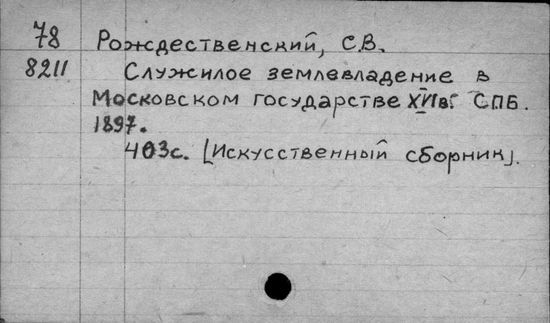 78 Рождественский, С.В.
8211 Служилое землевладение в
Московском государстве XVIв. СПБ.
1897.
403с. [Искусственный сборник].